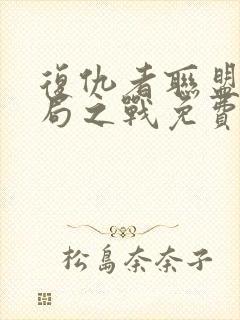 復仇者聯盟
局之戰免費
松島奈奈子